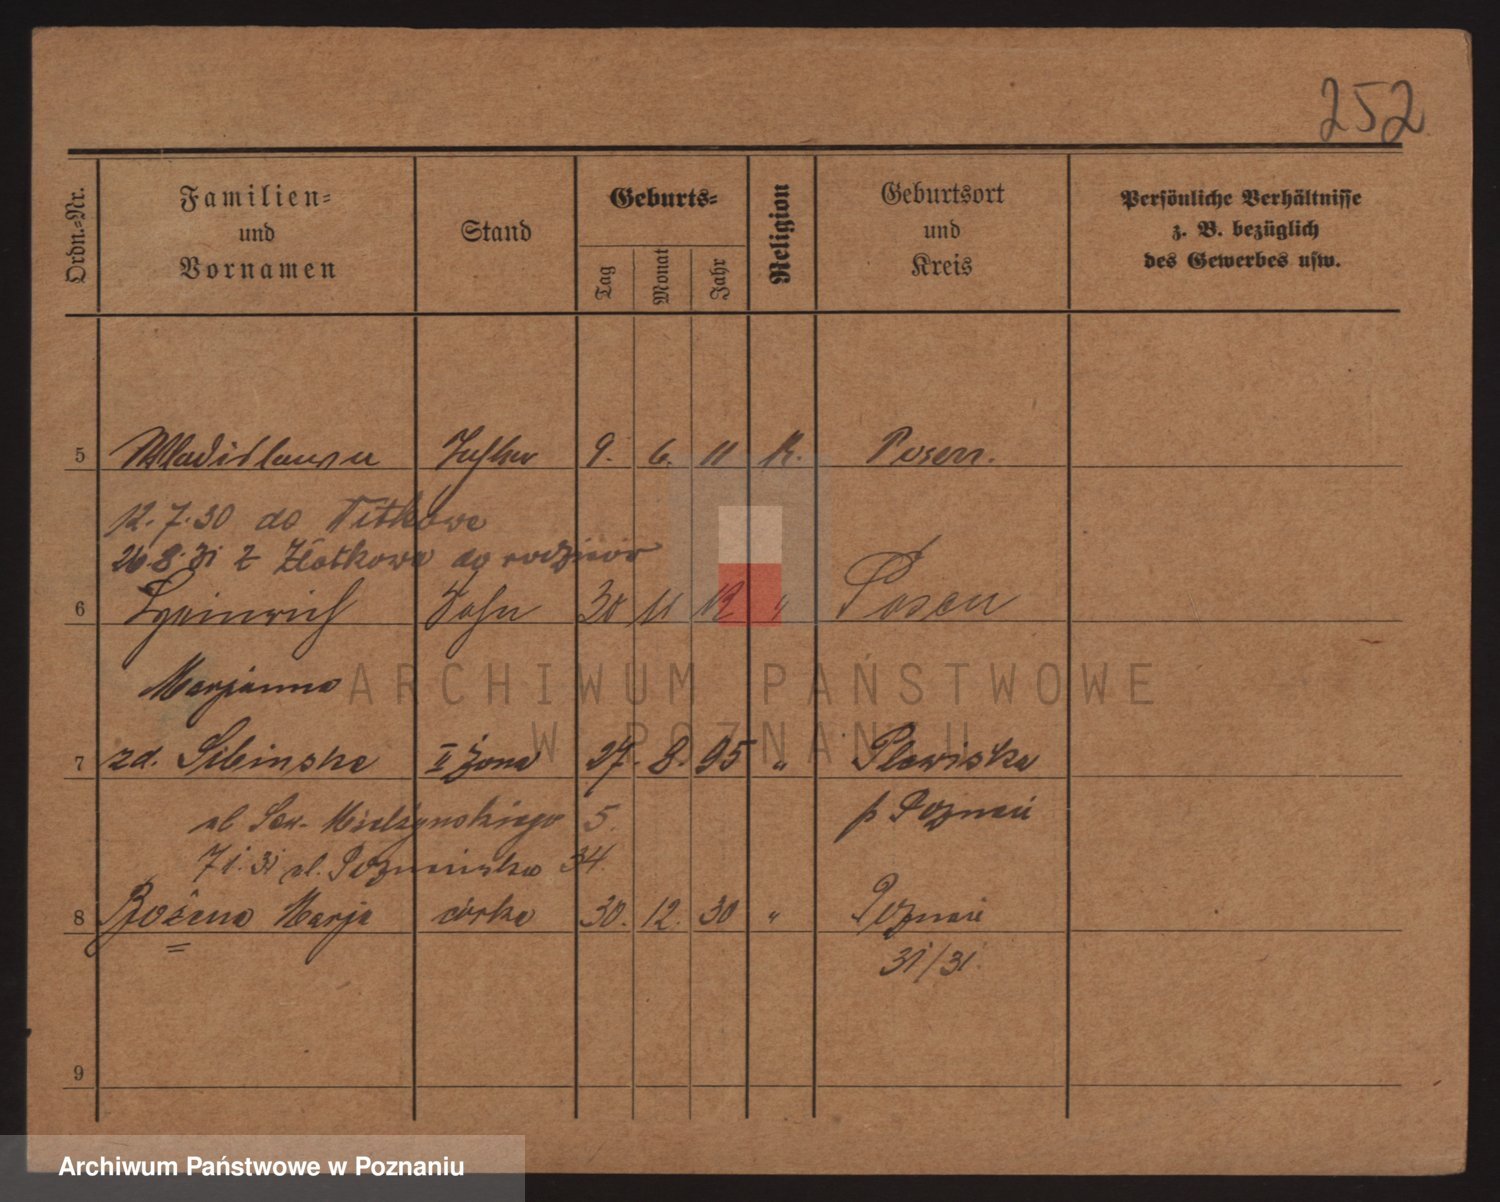 252
Ordn.-Nr.
Familien-
und
Vornamen
Stand
Geburts-
Tag
Monat
Jahr
Religion
Geburtsort
und
Kreis
Persönliche Verhältnisse
z. B. bezüglich
des Gewerbes usw.
5 Wladislawa Tochter 9. 6. 11 K. Posen.
12.7.30 do
26.8.31 z Złotkowa do rodziców
6 Heinrich Sohn 30 11 12 " Posen
Marjanna
7 zd. Sibinska II żona 27. 8. 95 " Plewiska
ul Sew. Mielżynskiego 5. p Poznań
7 1. 31 ul. Poznańska 34.
8 Bożena Marja córka 30. 12. 30 " Poznań
31/31.
9
ARCHIWUM PAŃSTWOWE
W POZNANIU
Archiwum Państwowe w Poznaniu